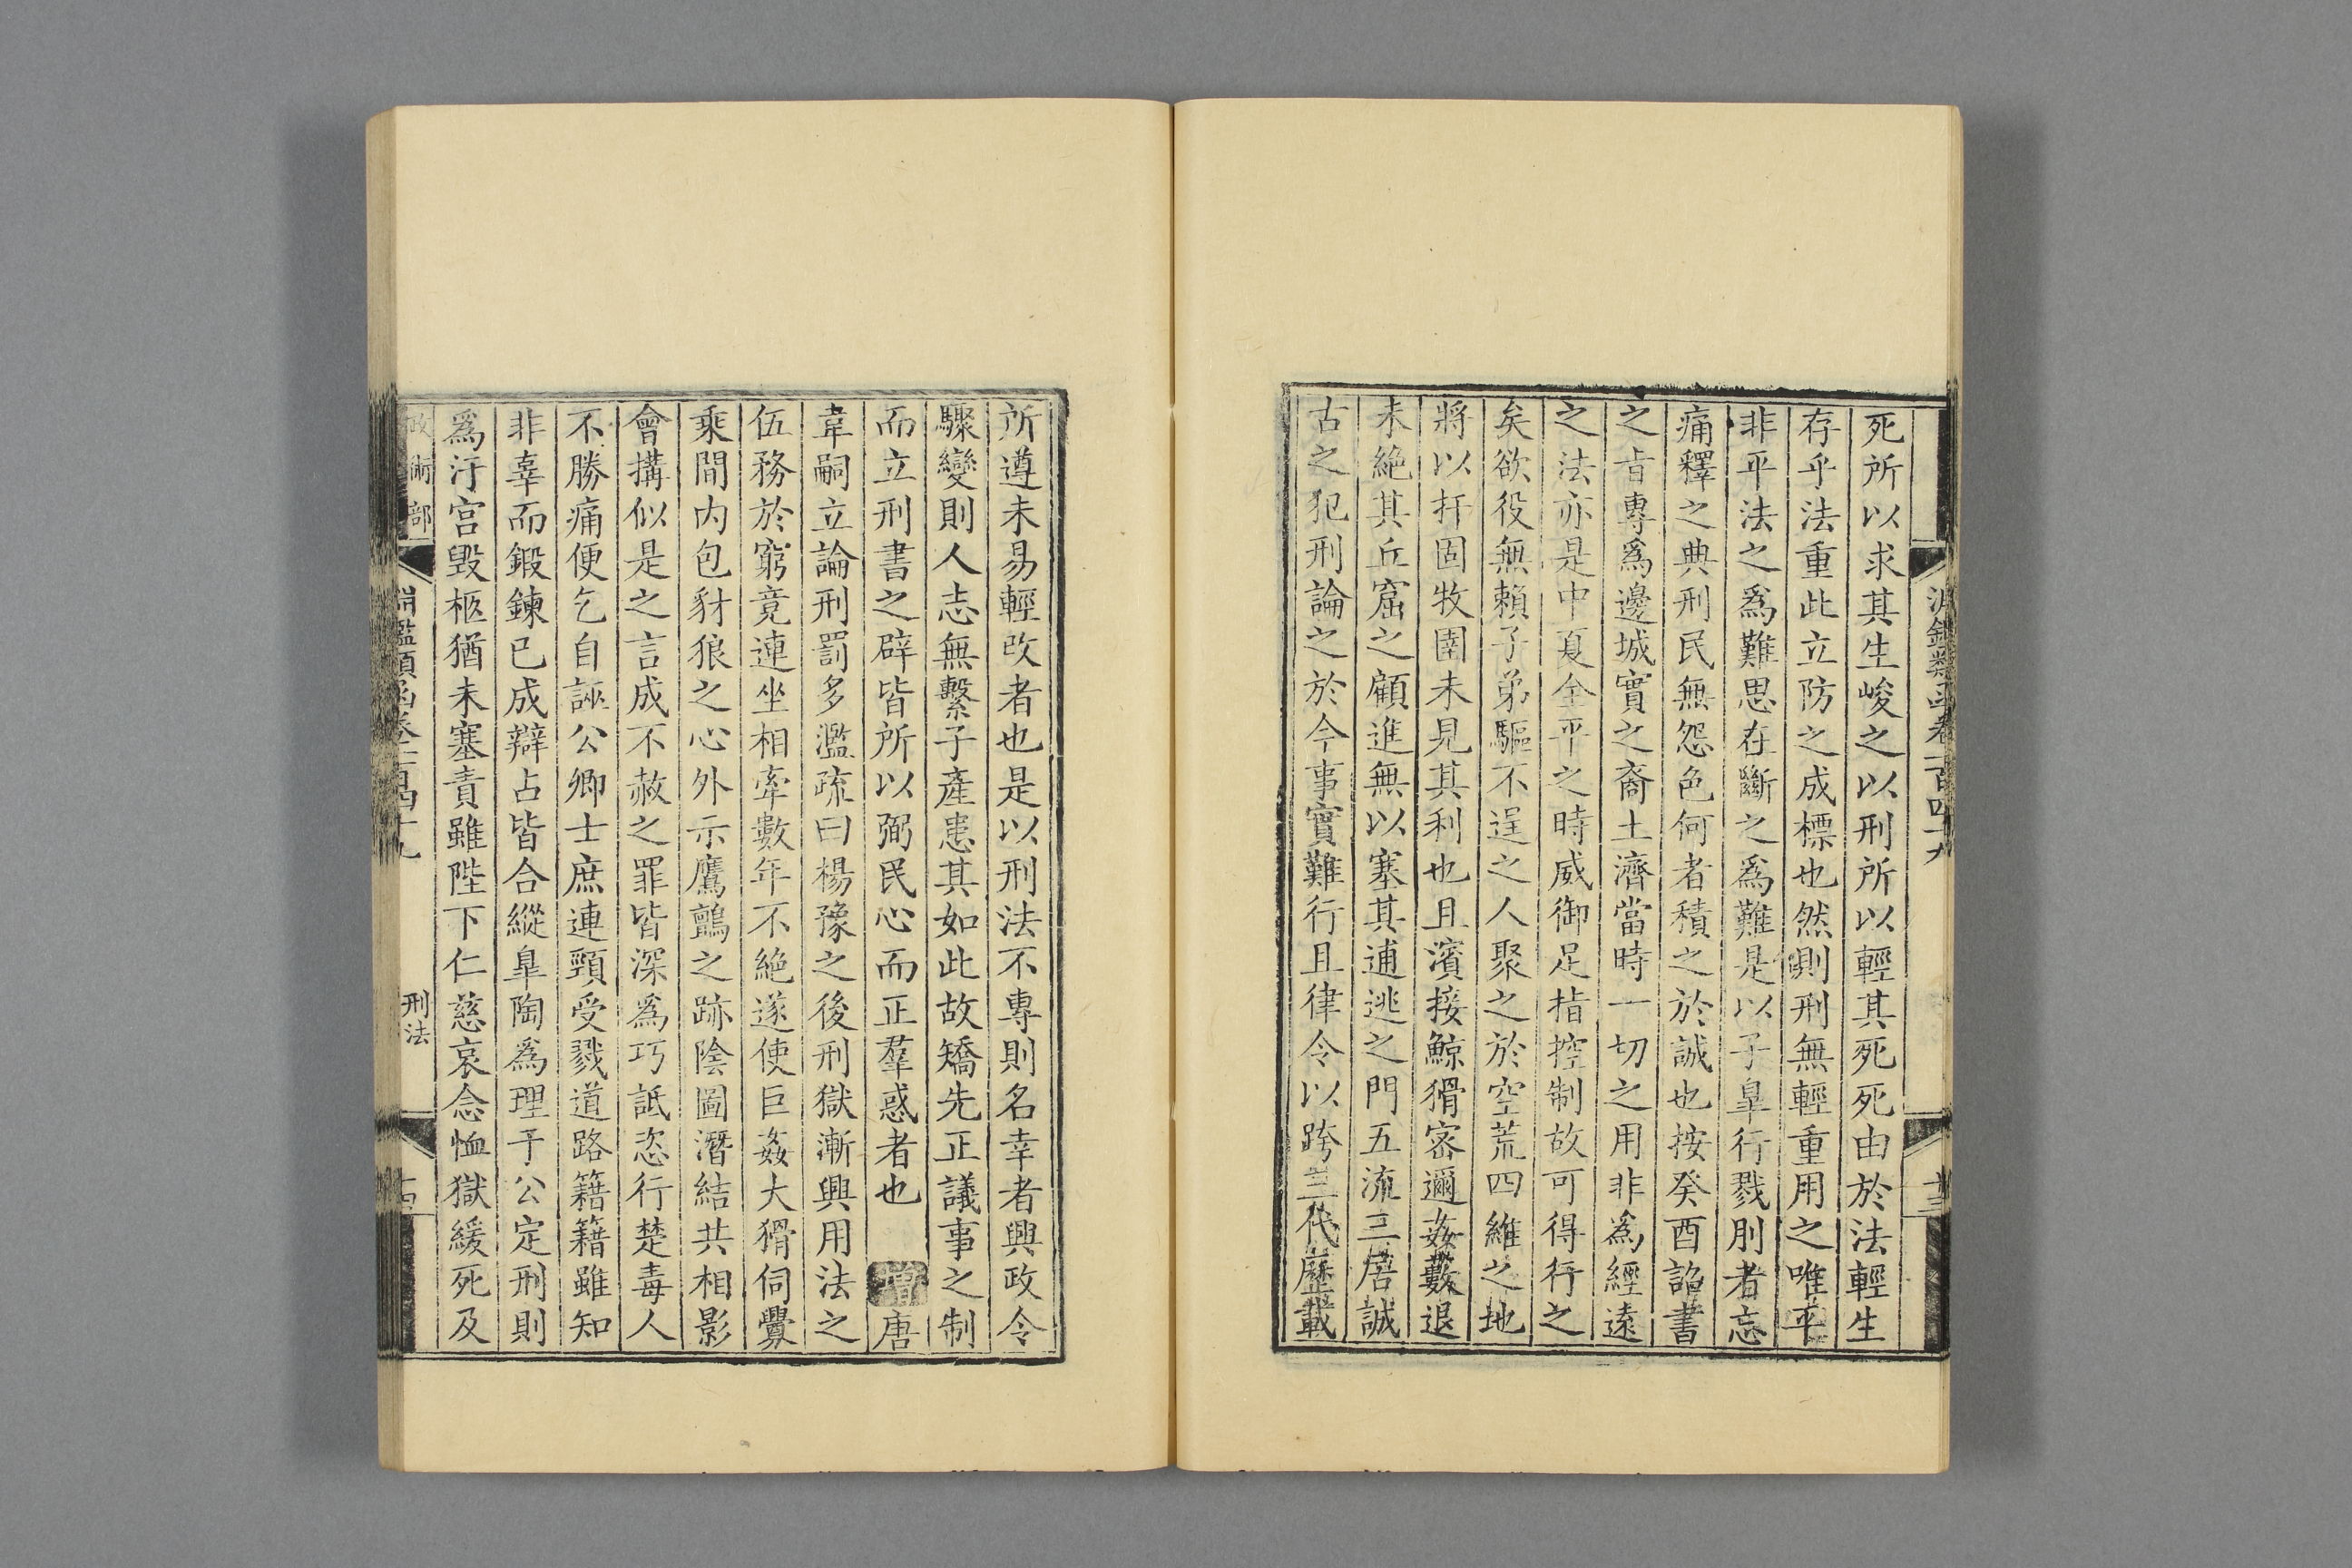 死所以求其生峻之以刑所以輕其死死由於法輕生
存乎法重此立防之成標也然則刑無輕重用之唯平
非平法之爲難思在斷之爲難是以子臯行戮刖者忘
痛釋之典刑民無怨色何者積之於誠也按癸酉詔書
之旨專爲邊城實之裔土濟當時一切之用非爲經遠
之法亦是中夏全平之時威御足指控制故可得行之
矣欲役無賴子弟驅不逞之人聚之於空荒四維之地
將以扞固牧圉未見其利也且濱接鯨猾密邇姦藪退
未絶其丘窟之顧進無以塞其逋逃之門五流三居誠
古之犯刑論之於今事實難行且律令以跨三代歷載
所遵未易輕改者也是以刑法不專則名幸者興政令
驟變則人志無繫子產患其如此故矯先正議事之制
而立刑書之辟皆所以弼民心而正羣惑者也 增唐
韋嗣立論刑罰多濫疏曰楊豫之後刑獄漸興用法之
伍務於窮竟連坐相牽數年不絶遂使巨姦大猾伺釁
乘間内包豺狼之心外示鷹鸇之跡陰圖潛結共相影
會搆似是之言成不赦之罪皆深爲巧詆恣行楚毒人
不勝痛便乞自誣公卿士庶連頸受戮道路籍籍雖知
非辜而鍛鍊已成辯占皆合縱臯陶爲理于公定刑則
爲汙宫毁柩猶未塞責雖陛下仁慈哀念恤獄緩死及
政術部 淵鑑類函卷一百四十九 刑法